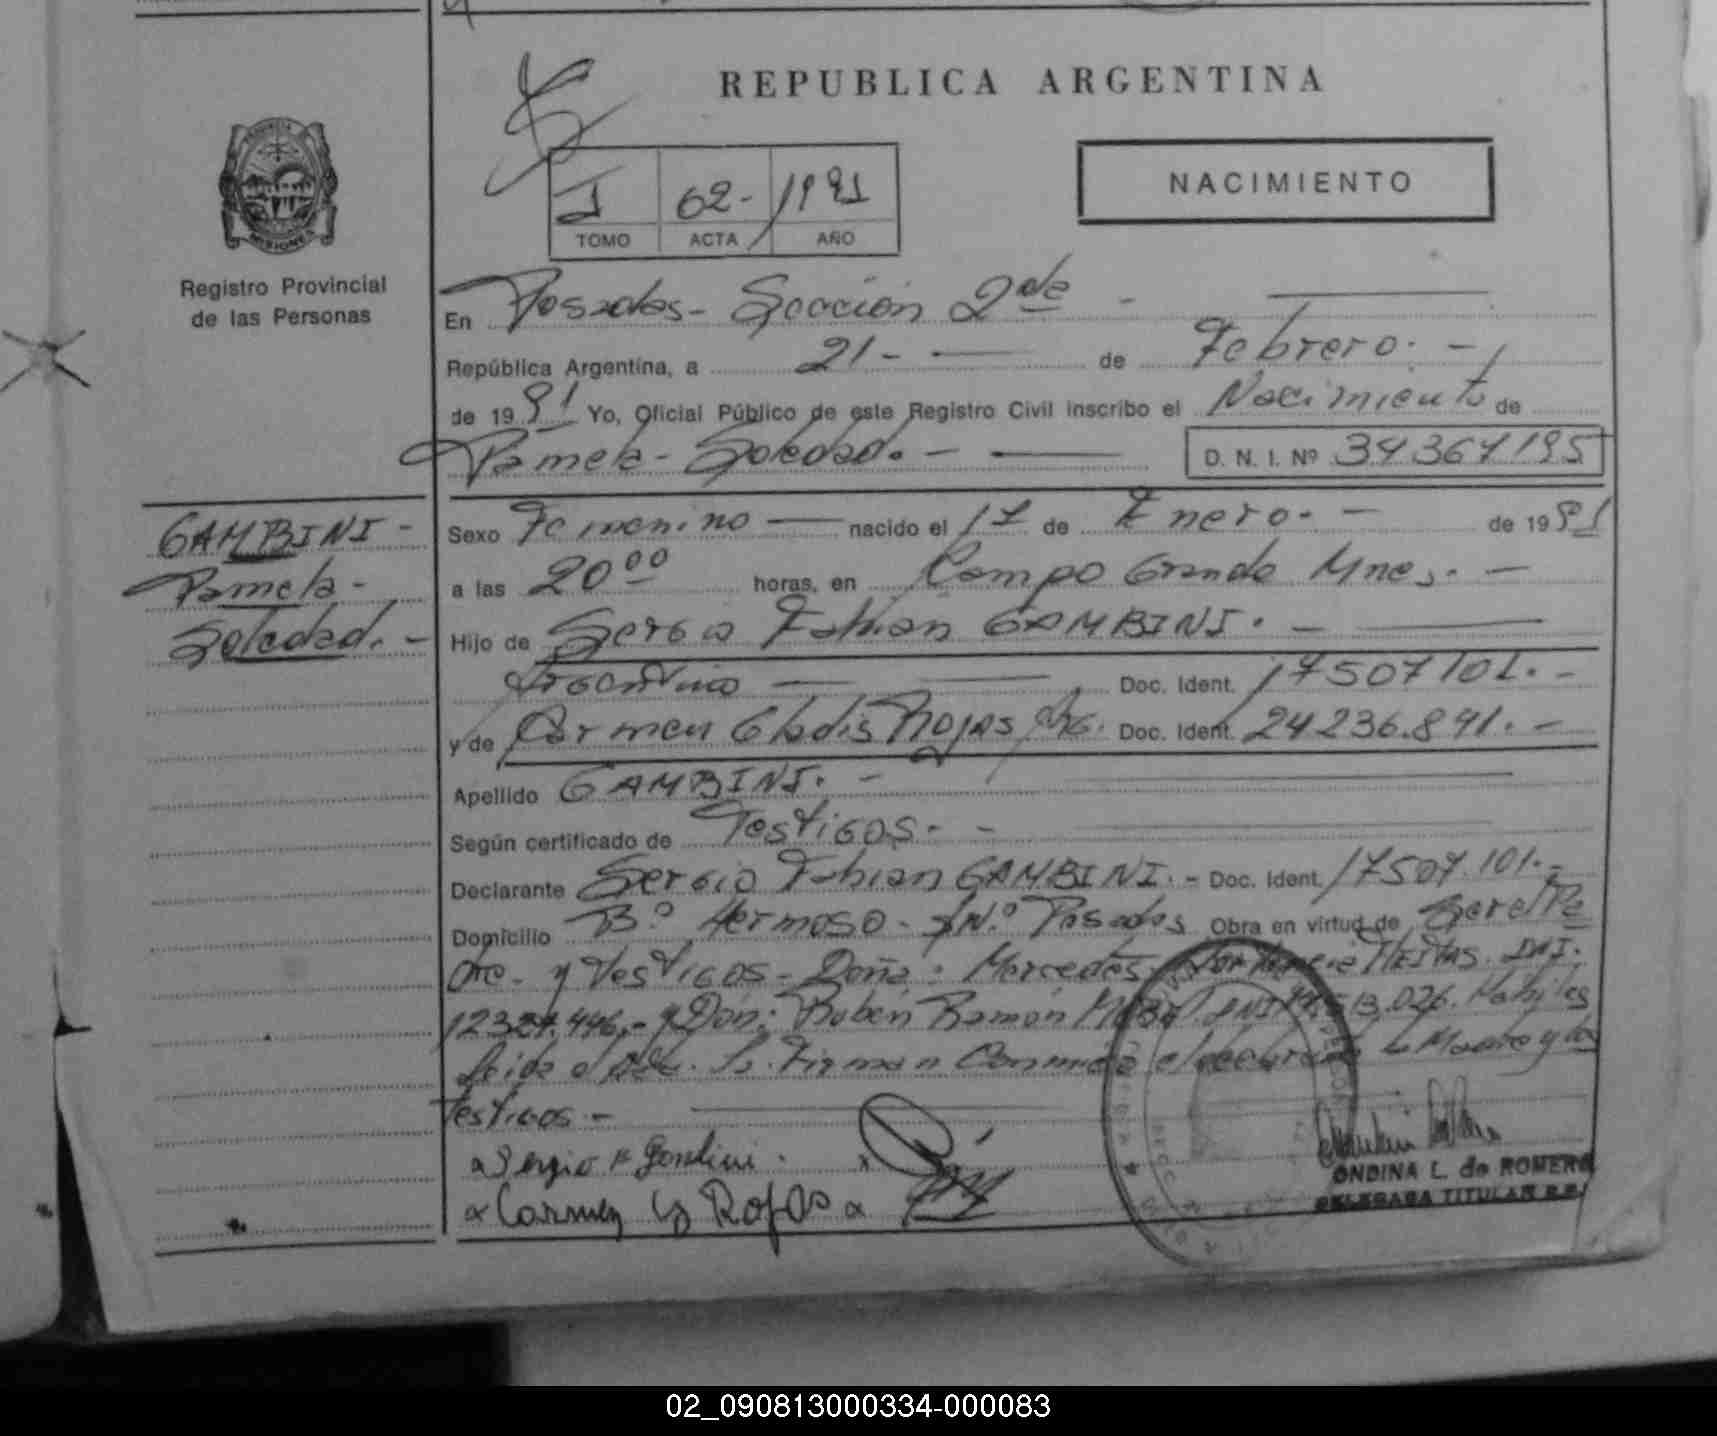 REPUBLICA ARGENTINA
NACIMIENTO
I 62- 1991
TOMO ACTA AÑO
PROVINCIA
MISIONES
Registro Provincial
de las Personas
En Posadas- Sección 2da -
República Argentina, a 21- de Febrero. -
de 1991 Yo, Oficial Público de este Registro Civil inscribo el Nacimiento de
Pamela- Soledad. - D. N. I. Nº 34367195
GAMBINI -
Pamela -
Soledad. -
Sexo Femenino nacido el 17 de Enero. - de 1991
a las 20 00 horas, en Campo Grande Mnes. -
Hijo de Sergio Fabian GAMBINI. -
Argentino Doc. Ident. 17507101. -
y de Carmen Gladis Rojas Doc. Ident. 24236.891. -
Apellido GAMBINI. -
Según certificado de Testigos. -
Declarante Sergio Fabian GAMBINI. - Doc. Ident. 17507.101. -
Domicilio Bº Hermoso - S/Nº Posadas Obra en virtud de Ser el Pa
dre - y testigos - Doña: Mercedes DNI.
- y Don: Rubén Ramón DNI
Leida el Acta. Firman Conmigo el declarante la Madre y los
testigos. -
x Sergio F Gambini.
x Carmen G Rojas x
ONDINA L. de ROMERO
DELEGADA TITULAR R.P.
02_090813000334-000083